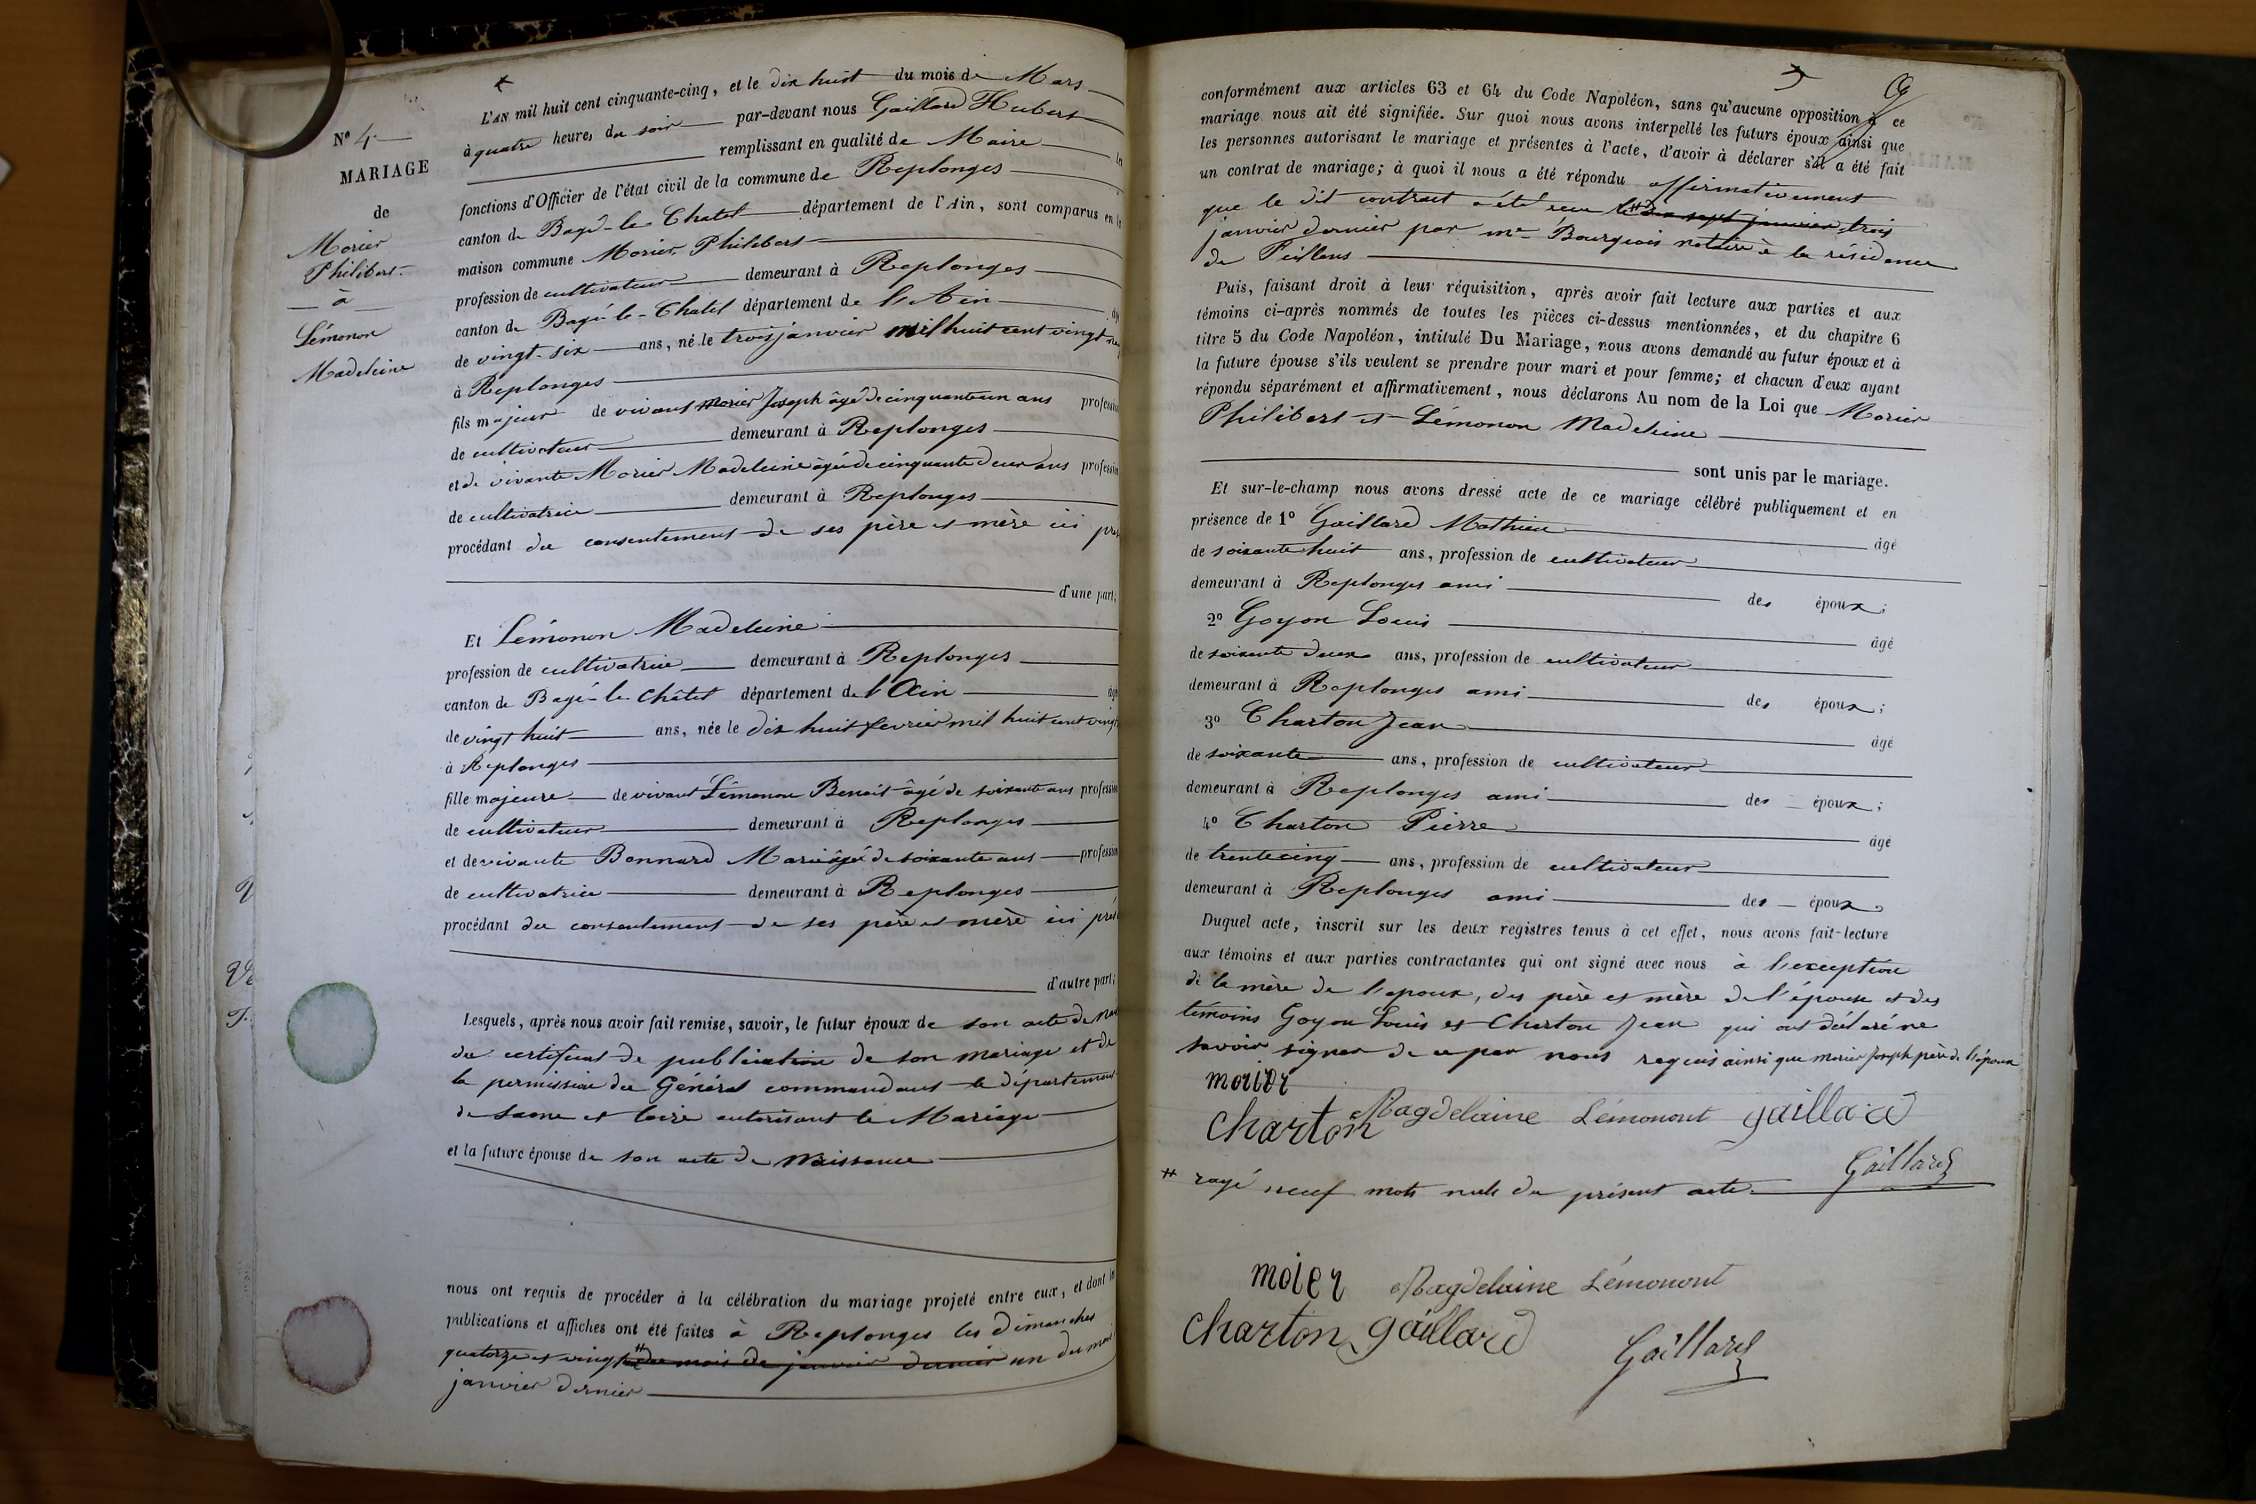 N° 4
MARIAGE
de
Morier
Philibert
à
Lémonon
Madeleine
L'AN mil huit cent cinquante-cinq, et le dix huit du mois de Mars
à quatre heures du soir par-devant nous Gaillard Hubert
remplissant en qualité de Maire
fonctions d'Officier de l'état civil de la commune de Replonges
canton de Bagé-le-Chatel département de l'Ain, sont comparus en la
maison commune Morier Philibert
profession de cultivateur demeurant à Replonges
canton de Bagé-le-Chatel département de l'Ain
de vingt-six ans, né le trois janvier mil huit cent vingt
à Replonges
fils majeur de vivant Morier Joseph âgé de cinquante un ans profession
de cultivateur demeurant à Replonges
et de vivante Morier Madeleine âgée de cinquante deux ans profession
de cultivatrice demeurant à Replonges
procédant du consentement de ses père et mère ici
d'une part;
Et Lémonon Madeleine
profession de cultivatrice demeurant à Replonges
canton de Bagé-le-Châtel département de l'Ain
de vingt huit ans, née le dix huit fevrier mil huit cent vingt
à Replonges
fille majeure de vivant Lémonon Benoit âgé de soixante ans profession
de cultivateur demeurant à Replonges
et de vivante Bonnard Marie âgée de soixante ans profession
de cultivatrice demeurant à Replonges
procédant du consentement de ses père et mère ici
d'autre part;
Lesquels, après nous avoir fait remise, savoir, le futur époux de son acte de
du certificat de publication de son mariage et de
la permission du Général commandant le département
de Saone et loire autorisant le Mariage
et la future épouse de son acte de Naissance
nous ont requis de procéder à la célébration du mariage projeté entre eux, et dont les
publications et affiches ont été faites à Replonges les dimanches
quatorze et vingt du mois de janvier dernier un du mois
janvier dernier
conformément aux articles 63 et 64 du Code Napoléon, sans qu'aucune opposition à ce
mariage nous ait été signifiée. Sur quoi nous avons interpellé les futurs époux ainsi que
les personnes autorisant le mariage et présentes à l'acte, d'avoir à déclarer s'il a été fait
un contrat de mariage; à quoi il nous a été répondu affirmativement
que le dit contrat a été recu le dix sept janvier trois
janvier dernier par me Bourgeois notaire à la résidence
de Feillens
Puis, faisant droit à leur réquisition, après avoir fait lecture aux parties et aux
témoins ci-après nommés de toutes les pièces ci-dessus mentionnées, et du chapitre 6
titre 5 du Code Napoléon, intitulé Du Mariage, nous avons demandé au futur époux et à
la future épouse s'ils veulent se prendre pour mari et pour femme; et chacun d'eux ayant
répondu séparément et affirmativement, nous déclarons Au nom de la Loi que Morier
Philibert et Lémonon Madeleine
sont unis par le mariage.
Et sur-le-champ nous avons dressé acte de ce mariage célébré publiquement et en
présence de 1° Gaillard Mathieu âgé
de soixante huit ans, profession de cultivateur
demeurant à Replonges ami des époux;
2° Goyon Louis âgé
de soixante deux ans, profession de cultivateur
demeurant à Replonges ami des époux;
3° Charton Jean âgé
de soixante ans, profession de cultivateur
demeurant à Replonges ami des époux;
4° Charton Pierre âgé
de trente cinq ans, profession de cultivateur
demeurant à Replonges ami des époux
Duquel acte, inscrit sur les deux registres tenus à cet effet, nous avons fait lecture
aux témoins et aux parties contractantes qui ont signé avec nous à l'exception
de la mère de l'epoux, des père et mère de l'épouse et des
témoins Goyon Louis et Charton Jean qui ont déclaré ne
savoir signer de ce par nous requis ainsi que morier Joseph père de l'époux
morier
Magdelaine Lémonont gaillard
charton
Gaillard
# rayé neuf mots nuls du présent acte
moier Magdelaine Lémonont
charton gaillard
Gaillard